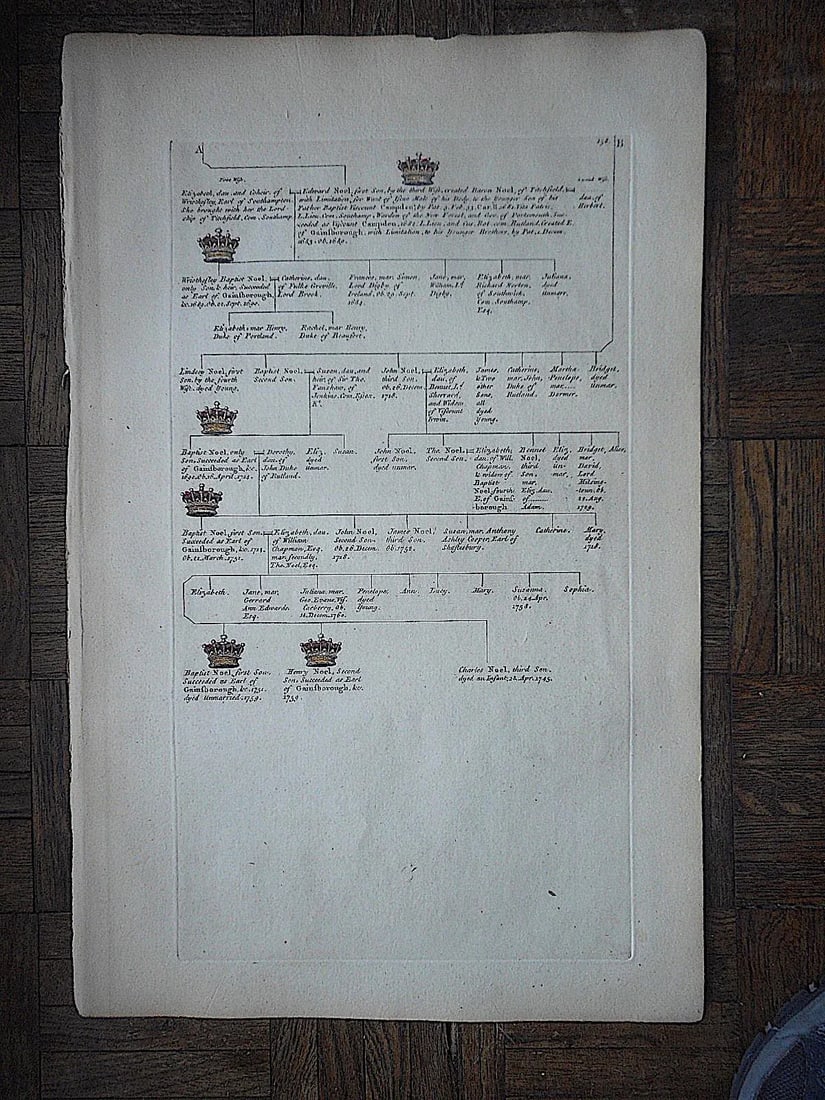 A
152
B
First Wife.
Second Wife.
Elizabeth, dau. and Coheir of
Wriothesley, Earl of Southampton.
She brought with her the Lord-
ship of Titchfield, Com. Southamp.
Edward Noel, first Son, by the third Wife, created Baron Noel, of Titchfield,
with Limitation, for Want of Issue Male of his Body, to the Younger Son of his
Father Baptist Viscount Campden; by Pat.
L. Lieu. Com. Southamp. Warden of the New Forest, and Gov. of Portsmouth. Suc-
ceeded as Viscount Campden, 1682. L. Lieu. and Cus. Rot. com. Rutland. Created E.
of Gainsborough, with Limitation, to his Younger Brothers, by Pat. 1. Decem.
1682. Ob. 1689.
dau. of
Herbert.
Wriothesley Baptist Noel,
only Son & heir, Succeeded
as Earl of Gainsborough,
&c. 1689. Ob. 21. Sept. 1690.
Catherine, dau.
of Fulke Greville,
Lord Brook.
Frances, mar. Simon,
Lord Digby, of
Ireland, Ob. 29. Sept.
1684.
Jane, mar.
William, Ld.
Digby.
Elizabeth, mar.
Richard Norton,
of Southwick,
Com. Southamp.
Esq.
Juliana,
dyed
unmarr.
Elizabeth, mar Henry,
Duke of Portland.
Rachel, mar Henry,
Duke of Beaufort.
Lindsey Noel, first
Son, by the fourth
Wife, dyed Young.
Baptist Noel,
Second Son.
Susan, dau. and
heir, of Sir Tho.
Fanshaw, of
Jenkins. Com. Essex.
Kt.
John Noel,
third Son,
Ob. 26. Decem.
1718.
Elizabeth,
dau. of
Bennet, Ld.
Sherrard,
and Widow
of Viscount
Irwin.
James,
& Two
other
Sons,
all
dyed
Young.
Catherine,
mar. John,
Duke of
Rutland.
Martha-
Penelope,
mar.....
Dormer.
Bridget,
dyed
Unmar.
Baptist Noel, only
Son, Succeeded as Earl
of Gainsborough, &c.
1690. Ob. 17. April, 1714.
Dorothy,
dau. of
John Duke
of Rutland.
Eliz.
dyed
unmar.
Susan.
John Noel,
first Son,
dyed unmar.
Tho. Noel,
Second Son.
Elizabeth,
dau. of Will.
Chapman,
& widow of
Baptist
Noel, fourth
E. of Gains-
borough
Bennet
Noel,
third
Son,
mar.
Eliz. dau.
of......
Adam.
Eliz.
dyed
un-
mar.
Bridget,
mar.
David,
Lord
Milsing-
town; Ob.
Aug.
1729.
Alice,
Baptist Noel, first Son,
Succeeded as Earl of
Gainsborough, &c. 1714.
Ob. 21. March, 1751.
Elizabeth, dau.
of William
Chapman, Esq.
mar. secondly,
Tho. Noel, Esq.
John Noel,
Second Son,
Ob. 26. Decem.
1718.
James Noel,
third Son,
Ob. 1752.
Susan, mar. Anthony
Ashley Cooper, Earl of
Shaftesbury.
Catherine.
Mary,
dyed
1718.
Elizabeth.
Jane, mar.
Gerrard
Ann Edwards.
Esq.
Juliana, mar.
Geo. Evans, Vis.
Carberry, Ob.
Decem. 1760.
Penelope,
dyed
Young.
Ann.
Lucy.
Mary.
Susanna,
Ob. 24. Apr.
1758.
Sophia.
Baptist Noel, first Son,
Succeeded as Earl of
Gainsborough, &c. 1751.
dyed Unmarried. 1759.
Henry Noel, Second
Son, Succeeded as Earl
of Gainsborough, &c.
1759.
Charles Noel, third Son,
dyed an Infant, 28. Apr. 1745.